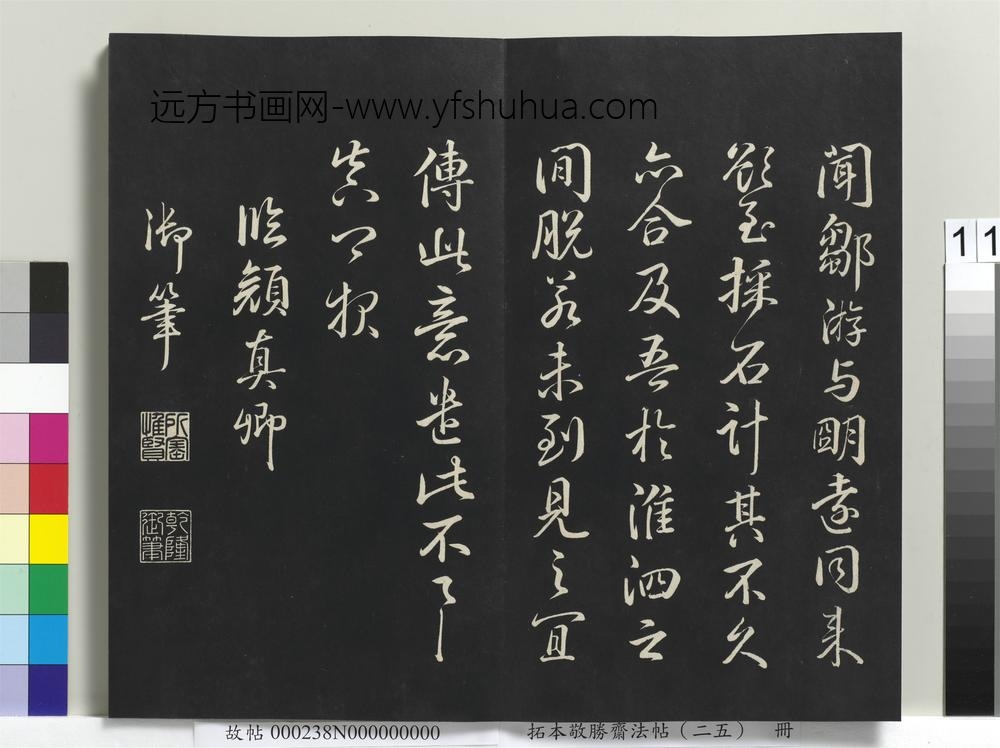 远方书画网-www.yfshuhua.com
聞鄒游与明遠同来
欲至採石計其不久
亦合及吾於淮泗之
間脱若未到見之宜
傳此意遣此不
真卿報
臨顏真卿
御筆
所寶惟賢
乾隆御筆
11
故帖 000238N000000000
拓本敬勝齋法帖（二五） 冊